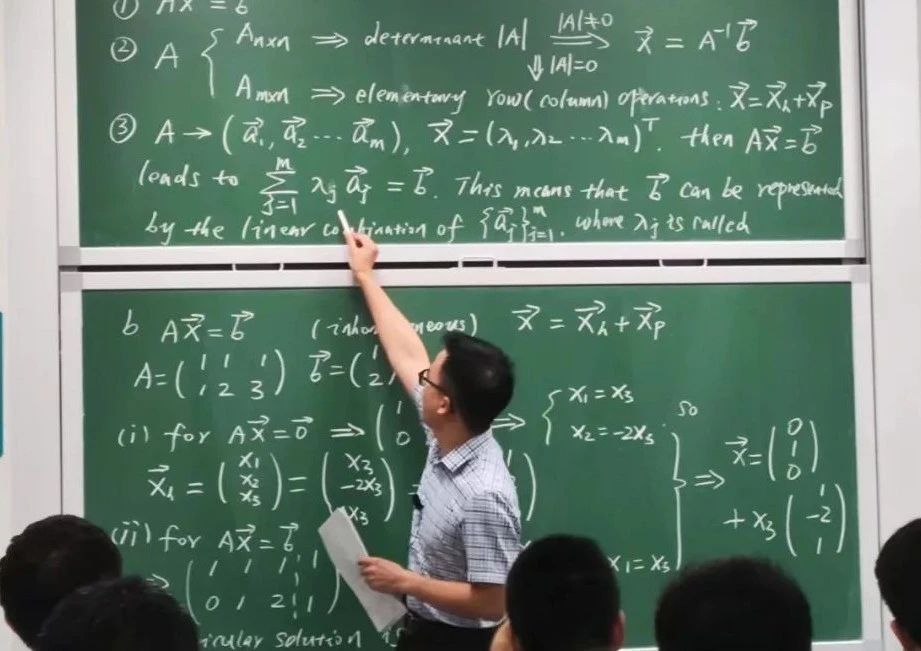 ① AX = b
② A { Anxn ⇒ determinant |A| |A|≠0 ⇒ x⃗ = A⁻¹b⃗
⇓ |A|=0
Amxn ⇒ elementary row (column) operations: x⃗ = x⃗h + x⃗p
③ A → (a⃗1, a⃗2 ... a⃗m), x⃗ = (λ1, λ2 ... λm)ᵀ. then Ax⃗ = b⃗
leads to ∑_{j=1}^{m} λj a⃗j = b⃗. This means that b⃗ can be represented
by the linear combination of {a⃗j}_{j=1}^{m}, where λj is called
b Ax⃗ = b⃗ x⃗ = x⃗h + x⃗p
A = (1 1 1 / 1 2 3) b⃗ = (1 / 2
(i) for Ax⃗ = 0⃗ ⇒ (1 / 0 ⇒ { x1 = x3
x2 = -2x3
so
x⃗h = (x1 / x2 / x3) = (x3 / -2x3 / x3)
⇒ x⃗ = (0 / 1 / 0)
+ x3 (1 / -2 / 1)
(ii) for Ax⃗ = b⃗
x1 = x3
⇒ (1 1 1 ¦ 1 / 0 1 2 ¦ 1)
solution is